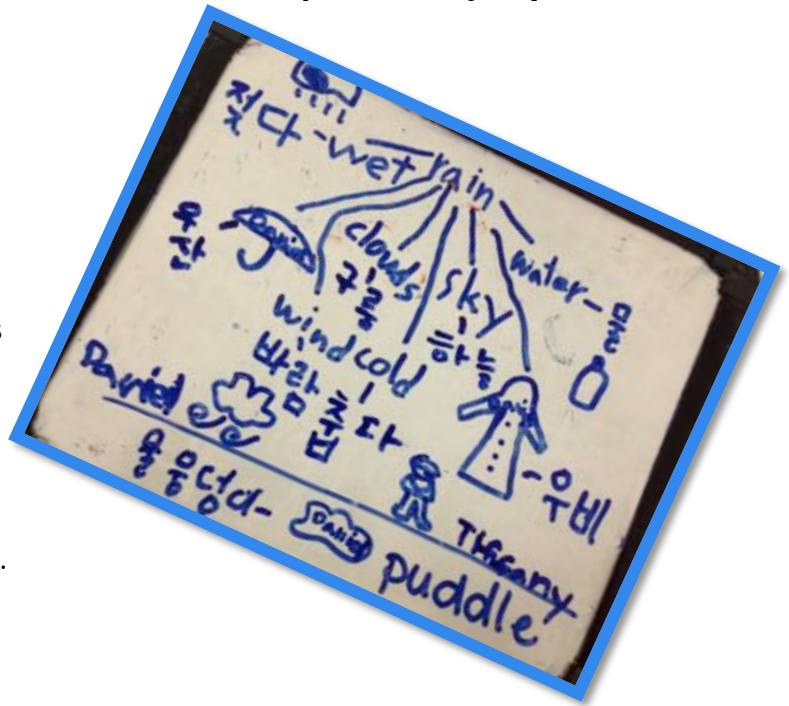 젖다-wet
rain
우산
Daniel
clouds
구름
sky
하늘
water-물
wind
바람
cold
춥다
-우비
Daniel
물웅덩이-
Daniel
puddle